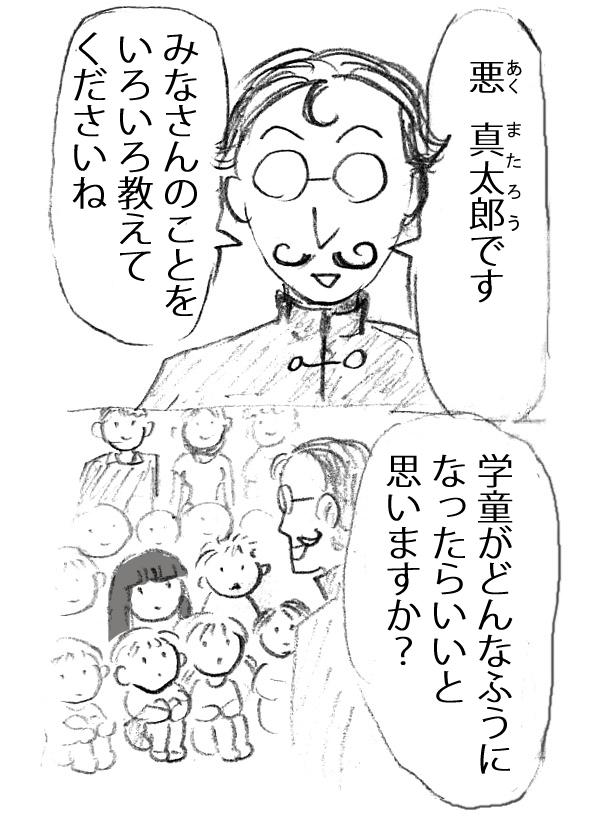 悪　真太郎です
あく　またろう
みなさんのことを
いろいろ教えて
くださいね
学童がどんなふうに
なったらいいと
思いますか？